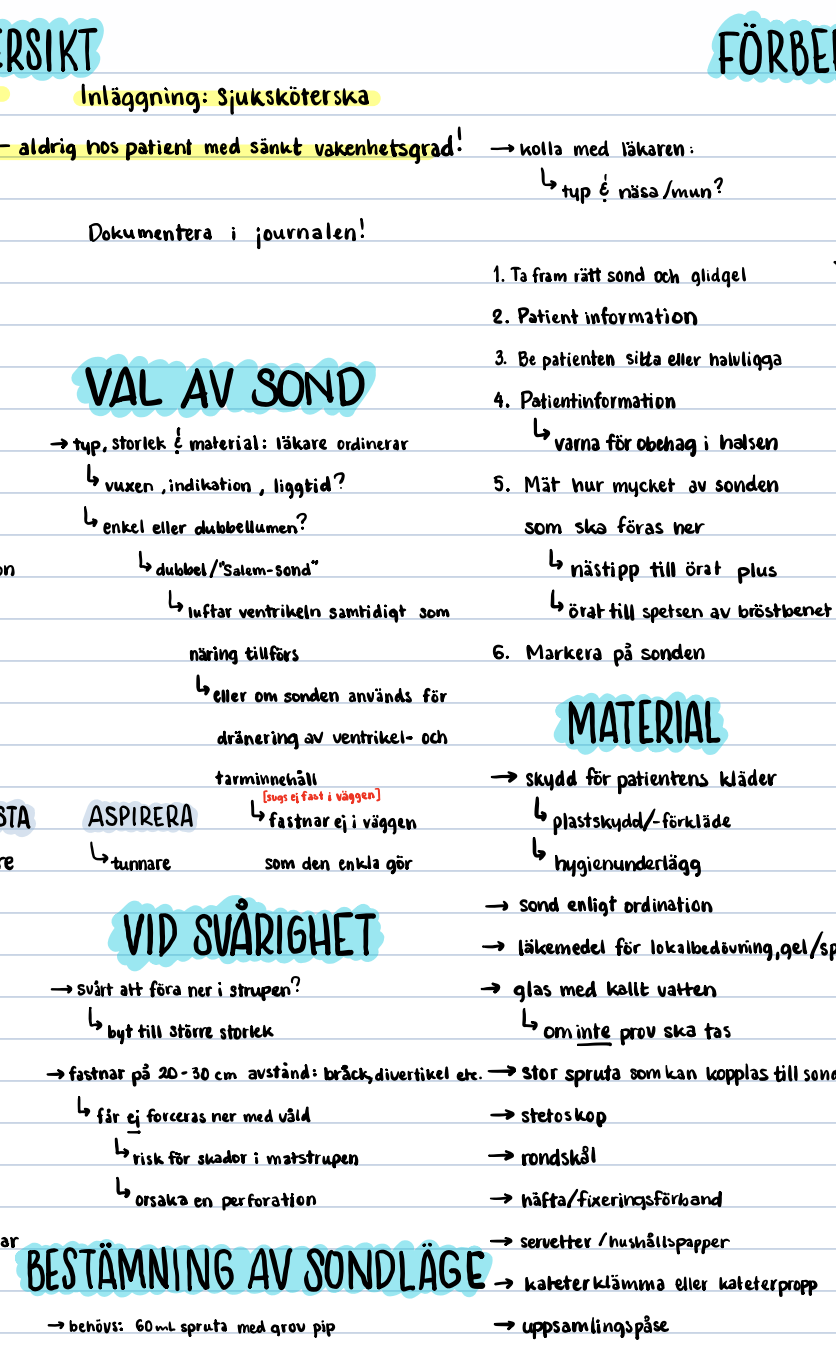 ERSIKT
Inläggning: Sjuksköterska
– aldrig hos patient med sänkt vakenhetsgrad!
Dokumentera i journalen!
VAL AV SOND
→ typ, storlek & material: läkare ordinerar
↳ vuxen, indikation, liggtid?
↳ enkel eller dubbellumen?
on
↳ dubbel/"Salem-sond"
↳ luftar ventrikeln samtidigt som
näring tillförs
↳ eller om sonden används för
dränering av ventrikel- och
tarminnehåll
[sugs ej fast i väggen]
↳ fastnar ej i väggen
som den enkla gör
STA
re
ASPIRERA
↳ tunnare
VID SVÅRIGHET
→ svårt att föra ner i strupen?
↳ byt till större storlek
→ fastnar på 20-30 cm avstånd: bråck, divertikel etc.
↳ får ej forceras ner med våld
↳ risk för skador i matstrupen
↳ orsaka en perforation
ar
BESTÄMNING AV SONDLÄGE
→ behövs: 60mL spruta med grov pip
FÖRBE
→ kolla med läkaren:
↳ typ & näsa/mun?
1. Ta fram rätt sond och glidgel
2. Patient information
3. Be patienten sitta eller halvligga
4. Patientinformation
↳ varna för obehag i halsen
5. Mät hur mycket av sonden
som ska föras ner
↳ nästipp till örat plus
↳ örat till spetsen av bröstbenet
6. Markera på sonden
MATERIAL
→ skydd för patientens kläder
↳ plastskydd/-förkläde
↳ hygienunderlägg
→ sond enligt ordination
→ läkemedel för lokalbedövning, gel/sp
→ glas med kallt vatten
↳ om inte prov ska tas
→ stor spruta som kan kopplas till sond
→ stetoskop
→ rondskål
→ häfta/fixeringsförband
→ servetter/hushållspapper
→ kateterklämma eller kateterpropp
→ uppsamlingspåse